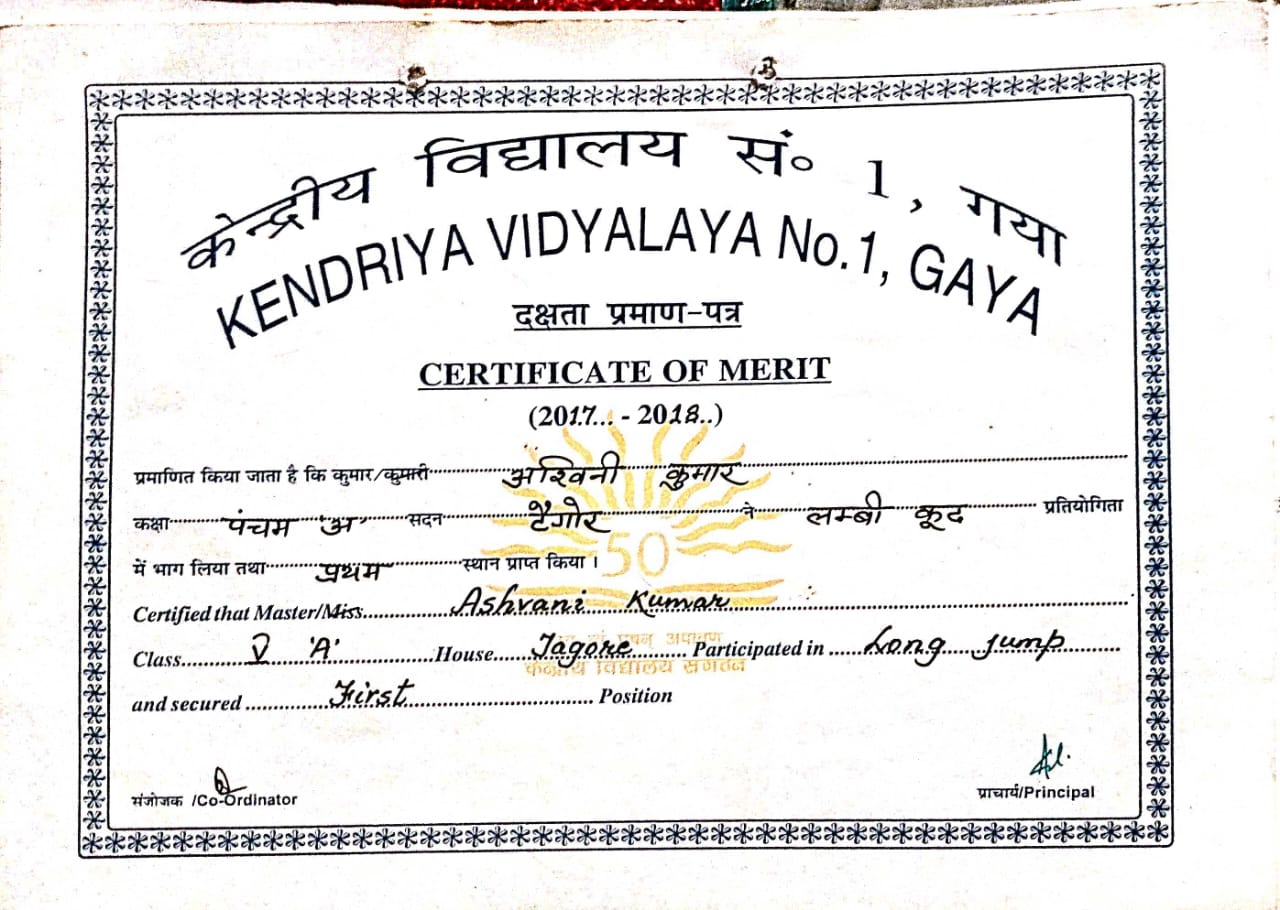 केन्द्रीय विद्यालय सं० 1, गया
KENDRIYA VIDYALAYA No.1, GAYA
दक्षता प्रमाण-पत्र
CERTIFICATE OF MERIT
(2017... - 2018..)
प्रमाणित किया जाता है कि कुमार/कुमारी अश्विनी कुमार
कक्षा पंचम 'अ' सदन टैगोर ने लम्बी कूद प्रतियोगिता
में भाग लिया तथा प्रथम स्थान प्राप्त किया ।
50
Certified that Master/Miss Ashvani Kumar
Class V 'A' House Tagore Participated in Long Jump
केन्द्रीय विद्यालय संगठन
and secured First Position
संजोजक /Co-Ordinator
प्राचार्य/Principal